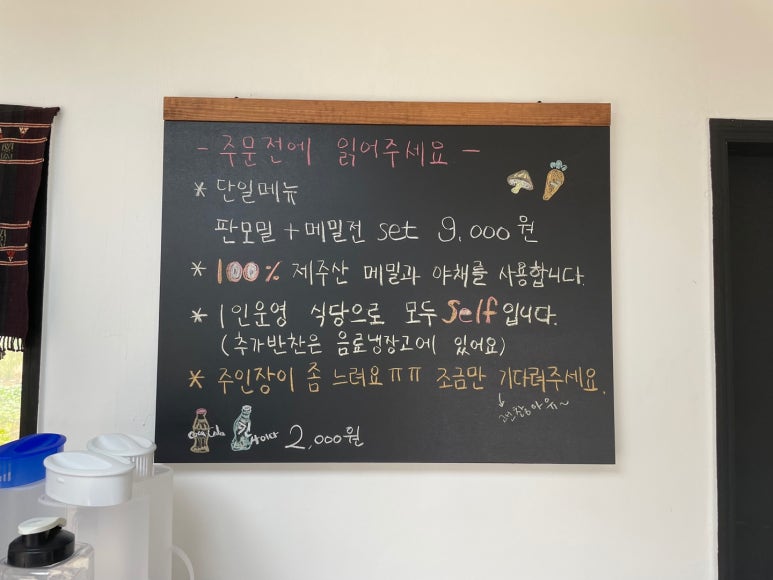 - 주문전에 읽어주세요 -
* 단일메뉴
판모밀 + 메밀전 set 9,000원
* 100% 제주산 메밀과 야채를 사용합니다.
* 1인운영 식당으로 모두 self입니다.
(추가반찬은 음료냉장고에 있어요)
* 주인장이 좀 느려요ㅠㅠ 조금만 기다려주세요.
Coca Cola 2,000원